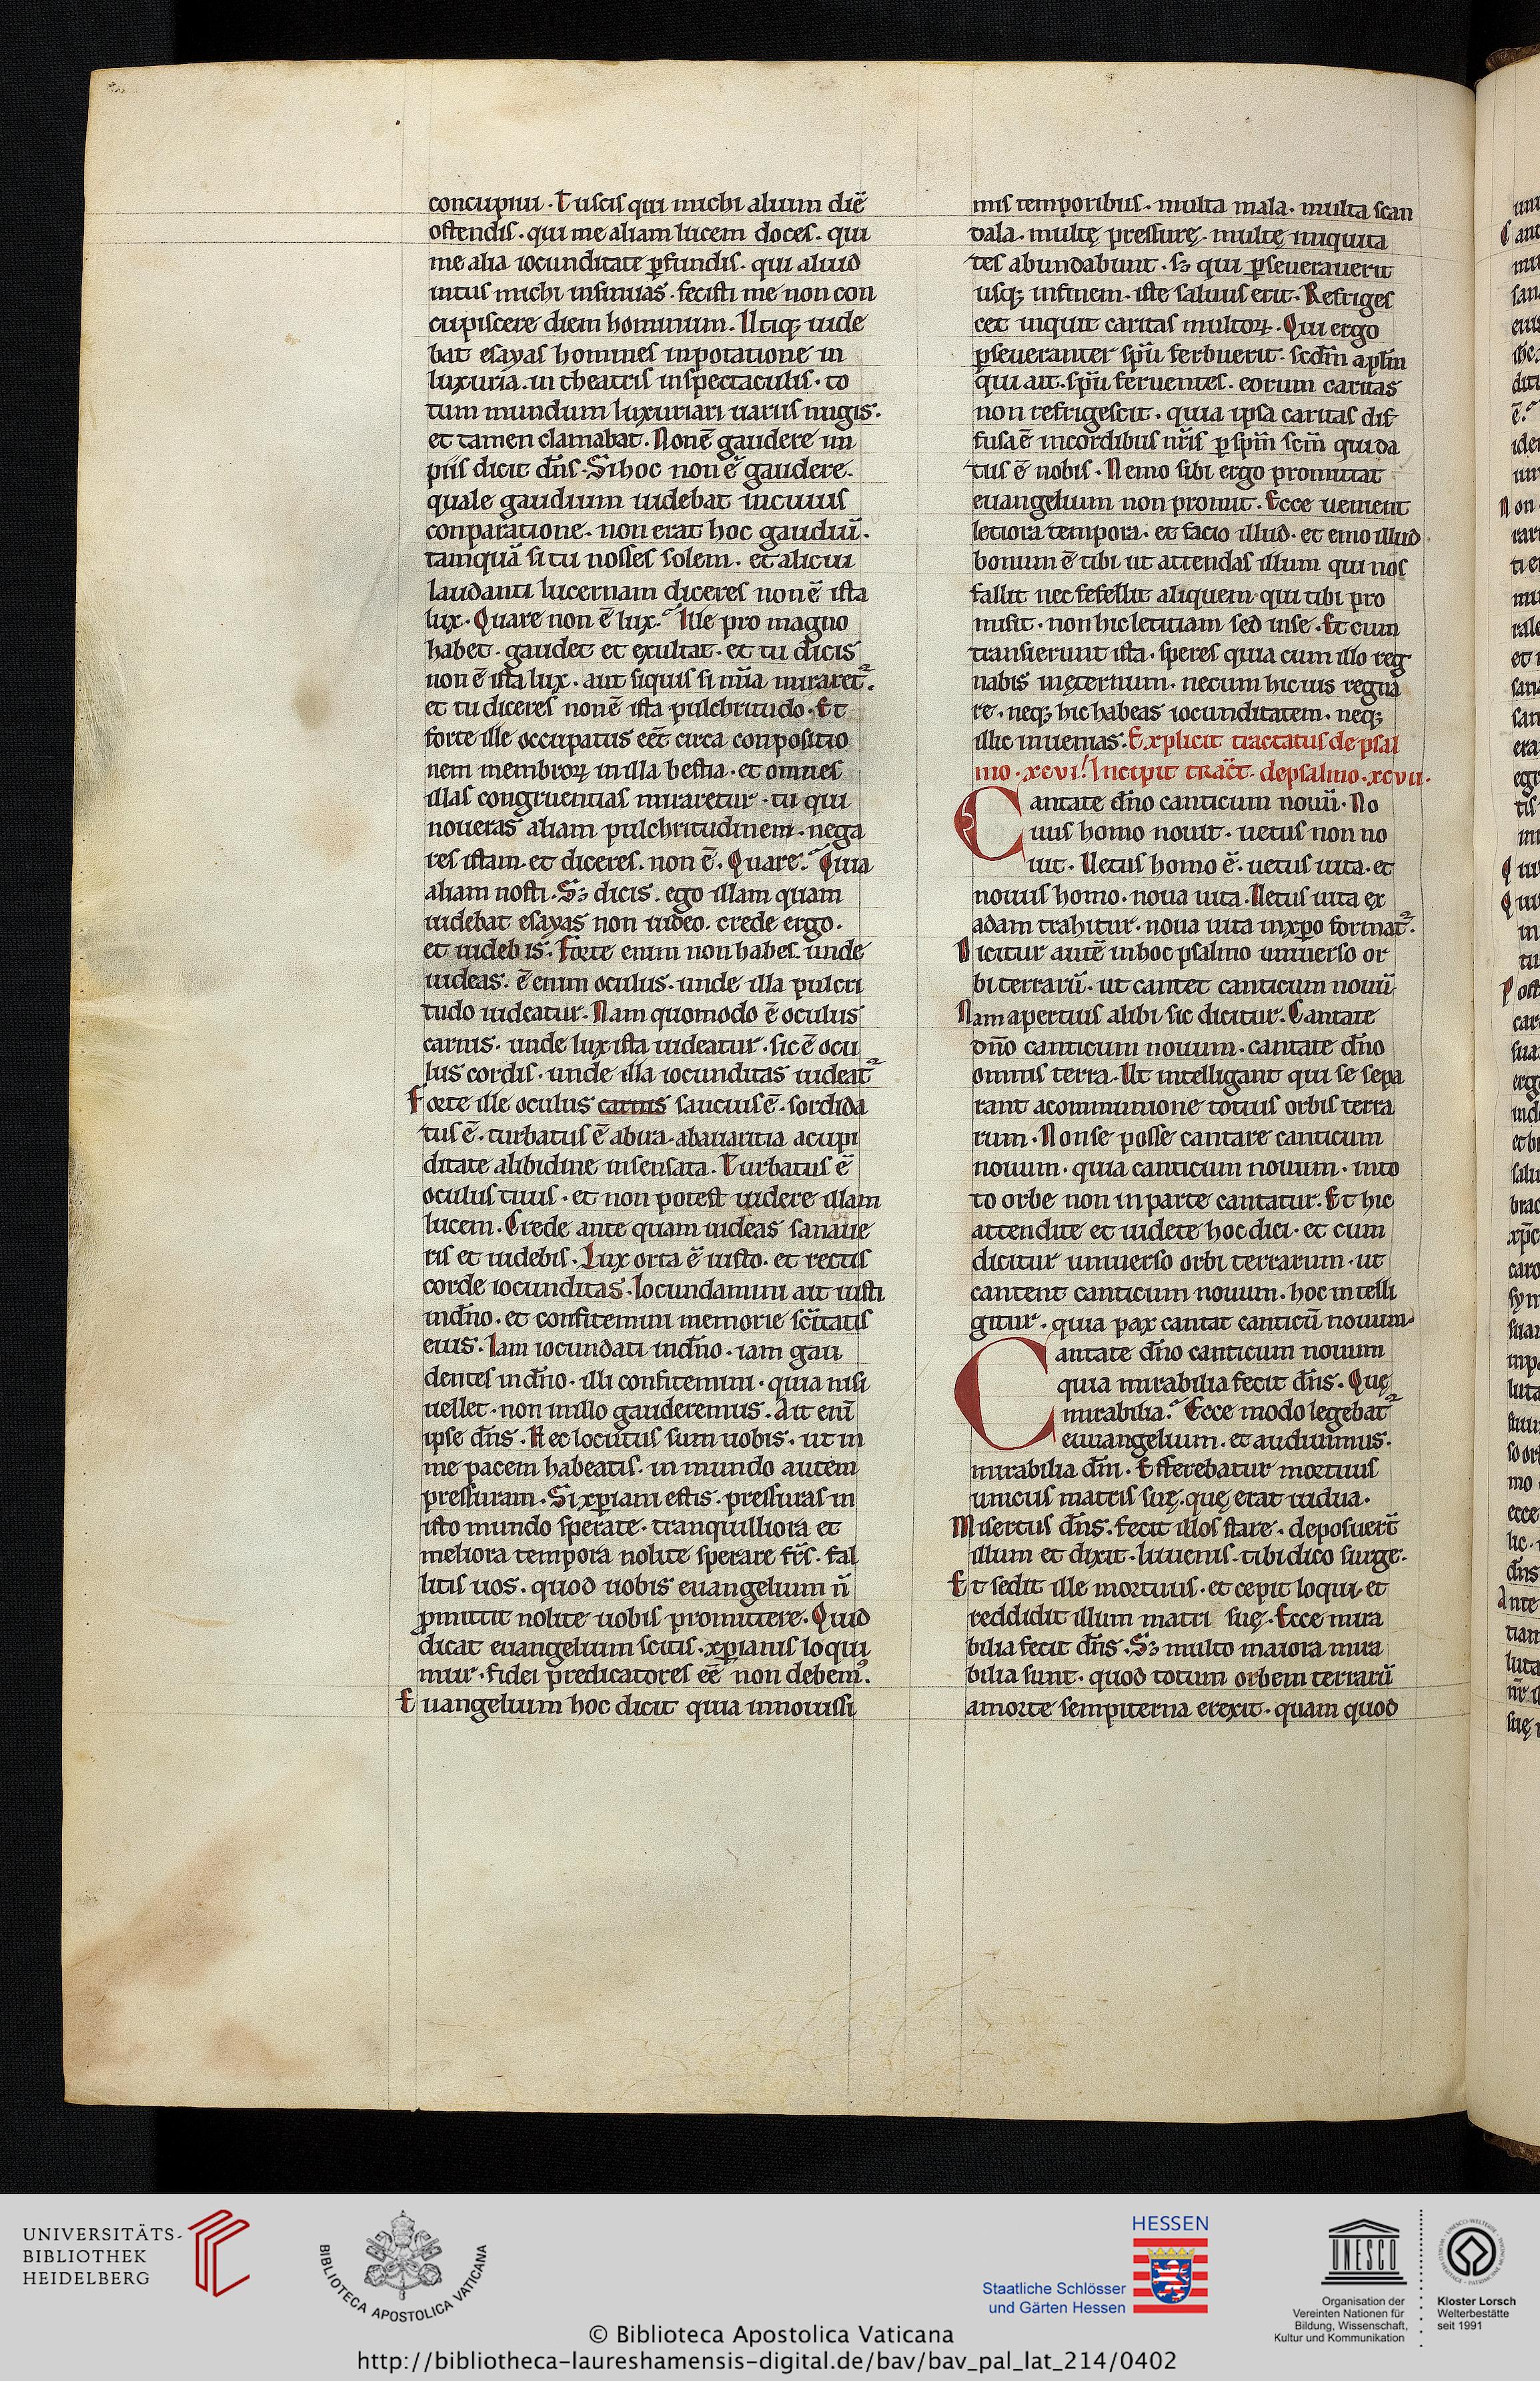 concupiui. Tu scis qui michi alium diē
ostendis. qui me aliam lucem doces. qui
me alia iocunditate ꝑfundis. qui aliud
intus michi insinuas. fecisti me non con
cupiscere diem hominum. Utiq; uide
bat esayas homines in potatione in
luxuria. in theatris in spectaculis. to
tum mundum luxuriari uariis nugis.
et tamen clamabat. Non ē gaudere im
piis dicit dñs. Si hoc non ē gaudere.
quale gaudium uidebat in cuius
conparatione. non erat hoc gaudiū.
tamquā si tu nosses solem. et alicui
laudanti lucernam diceres non ē ista
lux. Quare non ē lux. Ille pro magno
habet. gaudet et exultat. et tu dicis
non ē ista lux. aut siquis simia miraret᷑.
et tu diceres non ē ista pulchritudo. Et
forte ille occupatus eēt circa conpositio
nem membroꝝ in illa bestia. et omnes
illas congruentias miraretur. tu qui
noueras aliam pulchritudinem. nega
res istam. et diceres. non ē. Quare. Quia
aliam nosti. Sꝫ dicis. ego illam quam
uidebat esayas non uideo. crede ergo.
et uidebis. Forte enim non habes. unde
uideas. ē enim oculus. unde illa pulcri
tudo uideatur. Nam quomodo ē oculus
carnis. unde lux ista uideatur. sic ē ocu
lus cordis. unde illa iocunditas uideat᷑
Forte ille oculus carnis saucius ē. sordida
tus ē. turbatus ē ab ira. ab auaritia a cupi
ditate a libidine insensata. Turbatus ē
oculus tuus. et non potest uidere illam
lucem. Crede ante quam uideas sanaue
ris et uidebis. Lux orta ē iusto. et rectis
corde iocunditas. Iocundamini ait iusti
in dño. et confitemini memorie scītatis
eius. Iam iocundati in dño. iam gau
dentes in dño. illi confitemini. quia nisi
uellet. non in illo gauderemus. Ait enī
ipse dñs. Hec locutus sum uobis. ut in
me pacem habeatis. in mundo autem
pressuram. Si xp̄iani estis. pressuras in
isto mundo sperate. tranquilliora et
meliora tempora nolite sperare fr̄s. fal
litis uos. quod uobis euangelium ñ
ꝓmittit nolite uobis promittere. Quid
dicat euangelium scitis. xp̄ianis loqui
mur. fidei predicatores eē non debemꝰ.
Euangelium hoc dicit quia in nouissi
mis temporibus. multa mala. multa scan
dala. multę pressurę. multę iniquita
tes abundabunt. sꝫ qui ꝑseuerauerit
usq; in finem. iste saluus erit. Refriges
cet inquit caritas multoꝝ. Qui ergo
ꝑseueranter sp̄u ferbuerit. scdm̄ aplm̄
qui ait. sp̄u feruentes. eorum caritas
non refrigescit. quia ipsa caritas dif
fusa ē in cordibus nr̄is ꝑ sp̄m scm̄ qui da
tus ē nobis. Nemo sibi ergo promittat
euangelium non promit. Ecce uenient
letiora tempora. et facio illud. et emo illud
bonum ē tibi ut attendas illum qui nos
fallit nec fefellit aliquem. qui tibi pro
misit. non hic letitiam sed in se. Et cum
transierunt ista. speres quia cum illo reg
nabis in ęternum. ne cum hic uis regna
re. neq; hic habeas iocunditatem. neq;
illic inuenias. Explicit tractatus de psal
mo. xcvi. Incipit tract̄. de psalmo. xcvii.
Cantate dño canticum nouū. No
uus homo nouit. uetus non no
uit. Uetus homo ē. uetus uita. et
nouus homo. noua uita. Uetus uita ex
adam trahitur. noua uita in xp̄o format᷑.
Dicitur autē in hoc psalmo uniuerso or
bi terrarū. ut cantet canticum nouū
Nam apertius alibi sic dicitur. Cantate
dño canticum nouum. cantate dño
omnis terra. Ut intelligant qui se sepa
rant a communione totius orbis terra
rum. Non se posse cantare canticum
nouum. quia canticum nouum. in to
to orbe non in parte cantatur. Et hic
attendite et uidete hoc dici. et cum
dicitur uniuerso orbi terrarum. ut
cantent canticum nouum. hoc intelli
gitur. quia pax cantat canticū nouum.
Cantate dño canticum nouum
quia mirabilia fecit dñs. Quę
mirabilia. Ecce modo legebat᷑
euuangelium. et audiuimus.
mirabilia dm̄i. Efferebatur mortuus
unicus matris suę. quę erat uidua.
Misertus dñs. fecit illos stare. deposuer̄t
illum et dixit. Iuuenis. tibi dico surge.
Et sedit ille mortuus. et cepit loqui. et
reddidit illum matri suę. Ecce mira
bilia fecit dñs. Sꝫ multo maiora mira
bilia sunt. quod totum orbem terrarū
a morte sempiterna erexit. quam quod
UNIVERSITÄTS-
BIBLIOTHEK
HEIDELBERG
BIBLIOTECA APOSTOLICA VATICANA
HESSEN
Staatliche Schlösser
und Gärten Hessen
UNESCO
Organisation der
Vereinten Nationen für
Bildung, Wissenschaft,
Kultur und Kommunikation
Kloster Lorsch
Welterbestätte
seit 1991
© Biblioteca Apostolica Vaticana
http://bibliotheca-laureshamensis-digital.de/bav/bav_pal_lat_214/0402